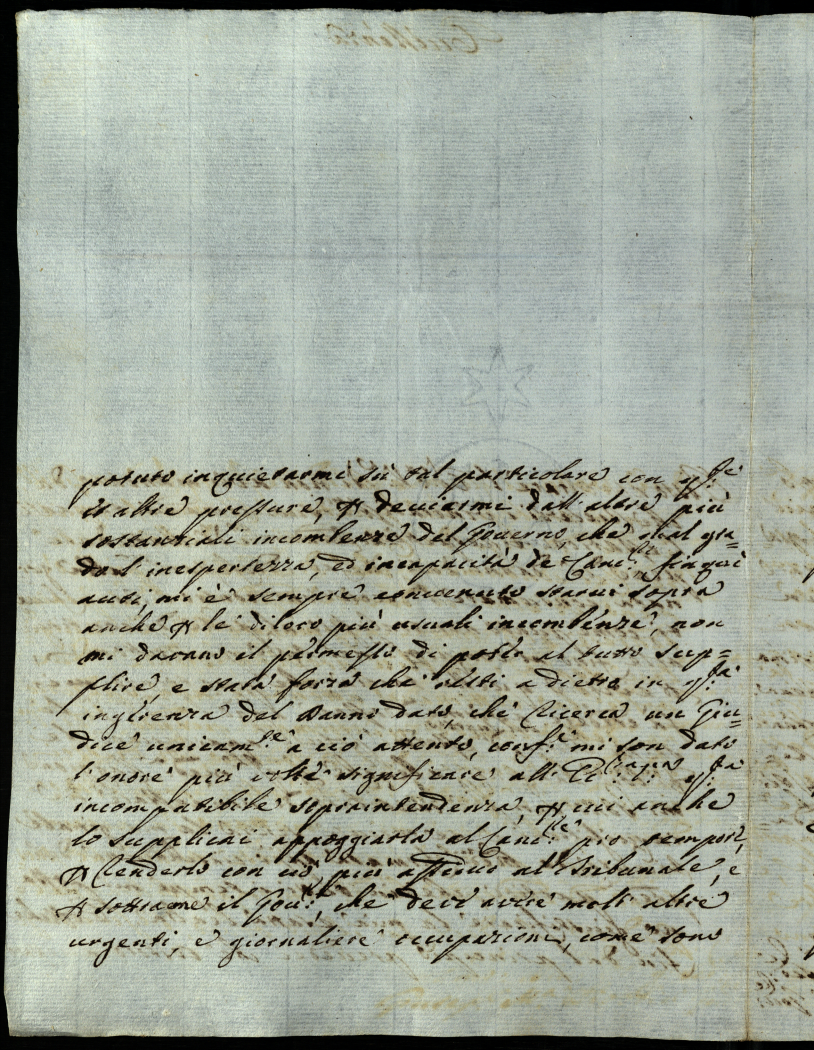 potuto inquietarmi sù tal particolare con q.ste
et altre pressure, p deviarmi dall'altre più
sostanziali incombenze del Governo, che mal gra=
do l'inespertezza, ed incapacità de Canc.ri finqui
avuti, mi è sempre convenuto starvi sopra
anche p le di loro più usuali incombenze, non
mi davano il permesso di poter al tutto sup=
plire, e stata forza che resti adietro in q.sta
ingerenza del Danno dato, che ricerca un Giu=
dice unicam.te a ciò attento, conf.e mi son dato
l'onore più volte significare all' q.sta
incompatibile sopraintendenza, p cui anche
lo supplicai appoggiarla al Canc.re pro tempore,
p renderlo con ciò più assiduo al Tribunale, e
p sottrarne il Gov.re, che deve avere molti altre
urgenti, e giornaliere occupazioni, come sono